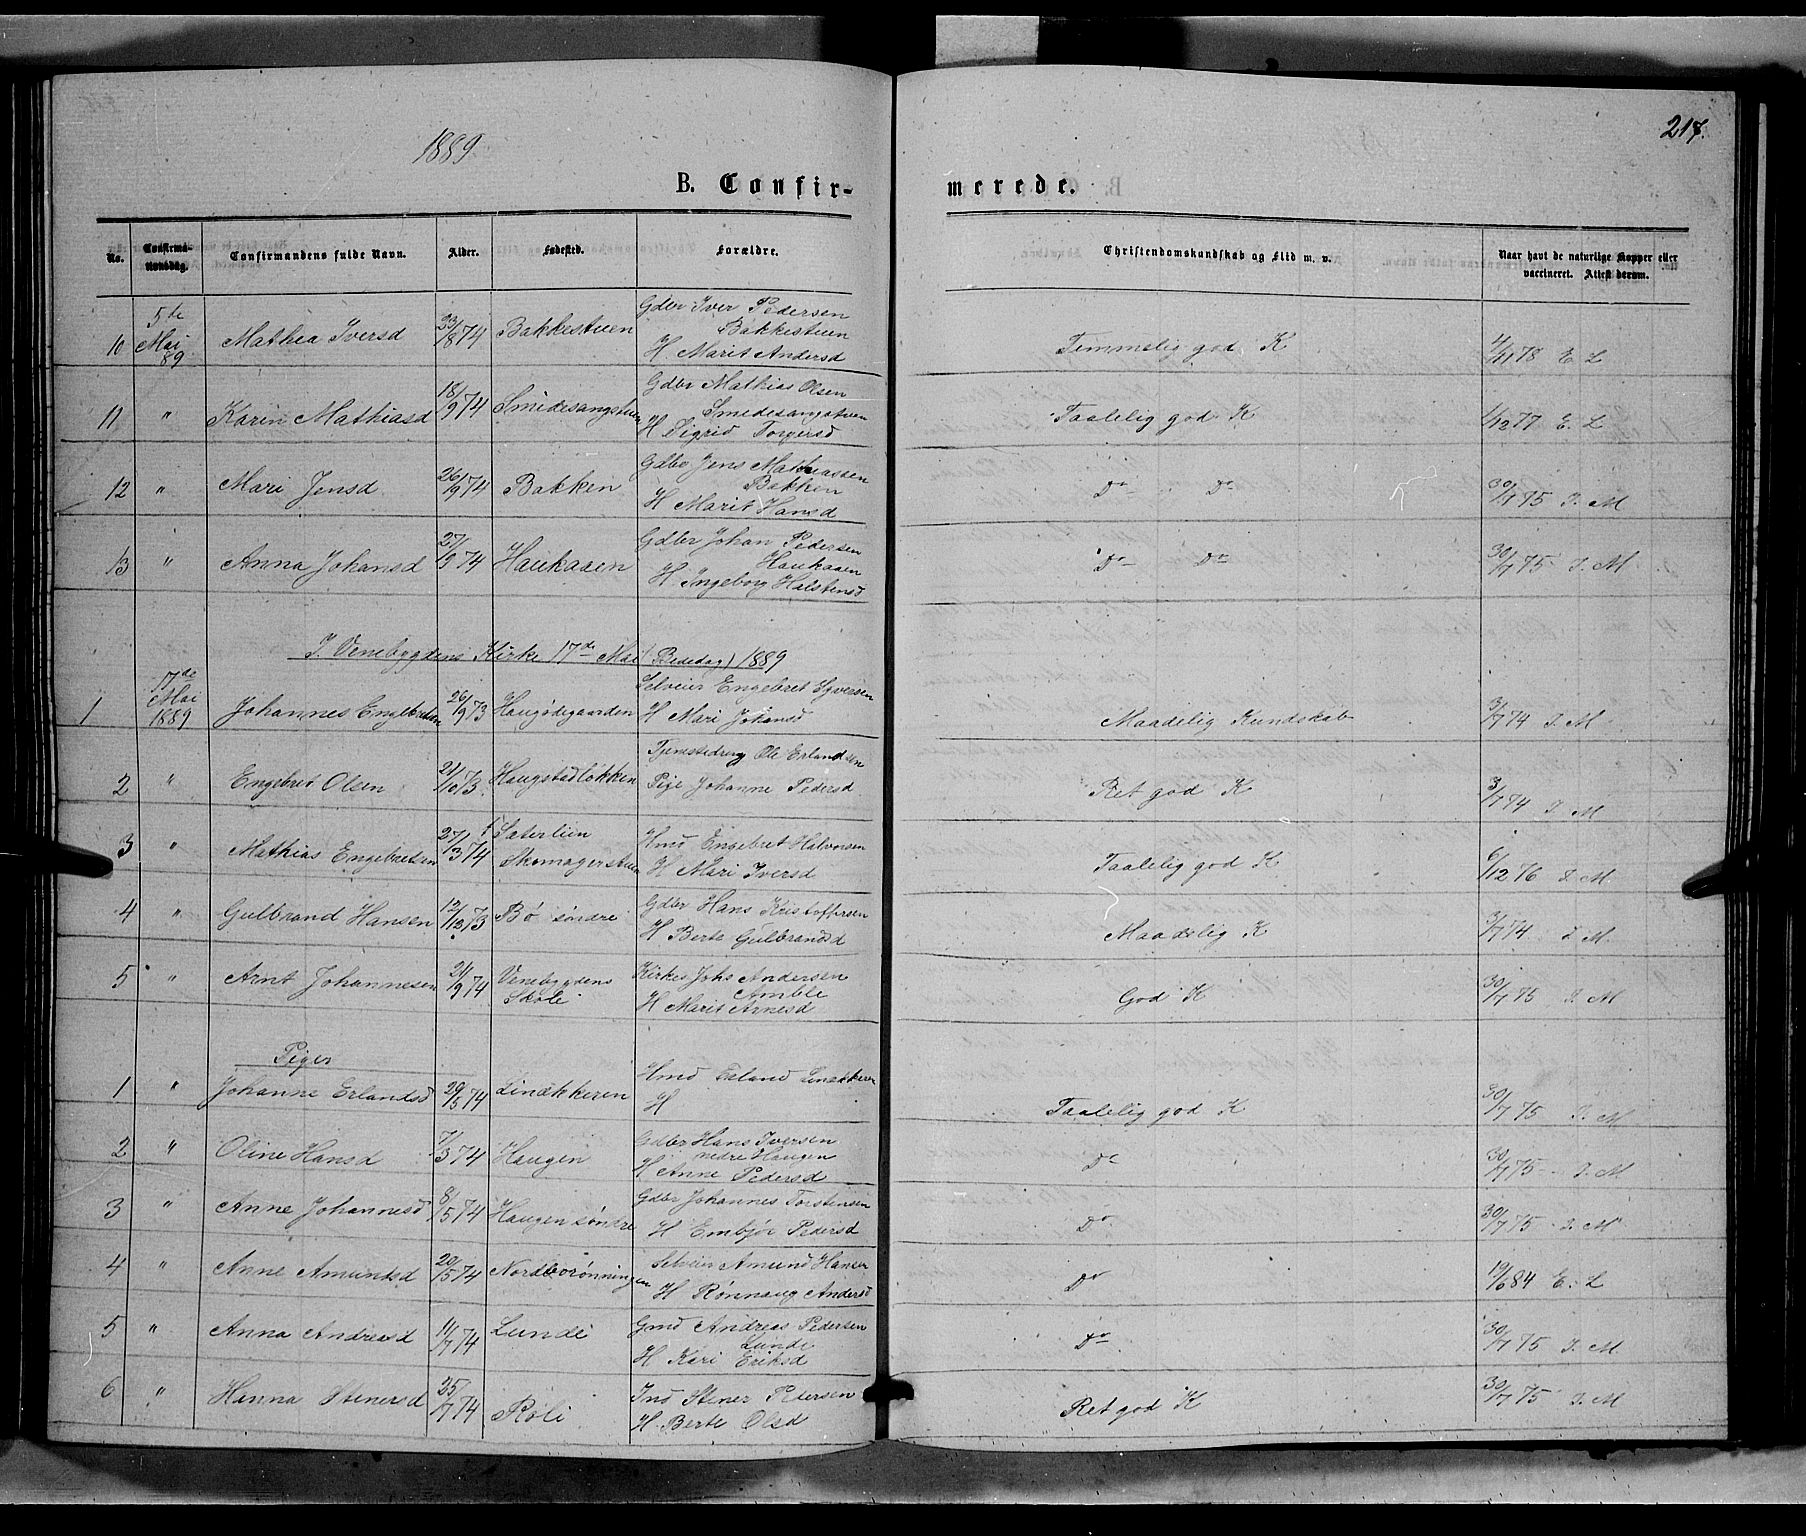 1889
217.
B. Confir-
merede.
No.
Confirma-
tionsdag.
Confirmandens fulde Navn.
Alder.
Fødested.
Forældre.
Christendomskundskab og Flid m. v.
Naar havt de naturlige Kopper eller
vaccineret. Attest derom.
10 5te Mai 89 Mathea Iversd 23/8 74 Bakkestuen Gdbr Iver Pedersen
Bakkestuen
H Marit Andersd Temmelig god K 4/11 78 E L
11 " Karin Mathiasd 18/9 74 Smedesangstuen Gdbr Mathias Olsen
Smedesangstuen
H Sigrid Torgersd Taalelig god K 1/12 77 E. L
12 " Mari Jensd 26/9 74 Bakken Gdbr Jens Mathiassen
Bakken
H Marit Hansd Do Do 30/7 75 I. M
13 " Anna Johansd 27/10 74 Haukaasen Gdbr Johan Pedersen
Haukaasen
H Ingeborg Halstensd Do Do 30/7 75 I. M
I Venebygdens Kirke 17de Mai (Bededag) 1889
1 17de Mai 1889 Johannes Engebretsen 26/9 73 Haugødegaarden Selveier Engebret Syversen
H Mari Johansd Maadelig Kundskab 3/7 74 I. M
2 " Engebret Olsen 21/10 73. Haugstadløkken Tjenestedreng Ole Erlandsen
Pige Johanne Pedersd Ret god K 3/7 74 I M
3 " Mathias Engebretsen 27/3 74 Sæterlien
Skomagerstuen Hmd Engebret Halvorsen
H Mari Iversd Taalelig god K 6/12 76 I. M.
4 " Gulbrand Hansen 12/12 73 Bø søndre Gdbr Hans Kristoffersen
H Berte Gulbrandsd Maadelig K 3/7 74 I M.
5 " Arnt Johannesen 21/9 74 Venebygdens
Skole Kirkes Johs Andersen
Amble
H Marit Arnesd God K 30/7 75 I. M
Piger
1 " Johanne Erlandsd 29/5 74 Linækkeren Hmd Erland Linækkeren
H Taalelig god K 30/7 75 I. M
2 " Oline Hansd 7/3 74 Haugen Gdbr Hans Iversen
nedre Haugen
H Anne Pedersd Do 30/7 75 I. M
3 " Anne Johannesd 8/5 74 Haugen søndre Gdbr Johannes Torstensen
H Embjør Pedersd Do 30/7 75 I. M
4 " Anne Amundsd 20/5 74 Nordborønningen Selveier Amund Hansen
H Rønnaug Andersd Do 19/6 84 E. L
5 " Anna Andreasd 11/7 74 Lunde Gmd Andreas Pedersen
Lunde
H Kari Eriksd Do 30/7 75 I. M
6 " Hanna Stenersd 25/7 74 Roli Ind Stener Pedersen
H. Berte Olsd Ret god K 30/7 75 I. M